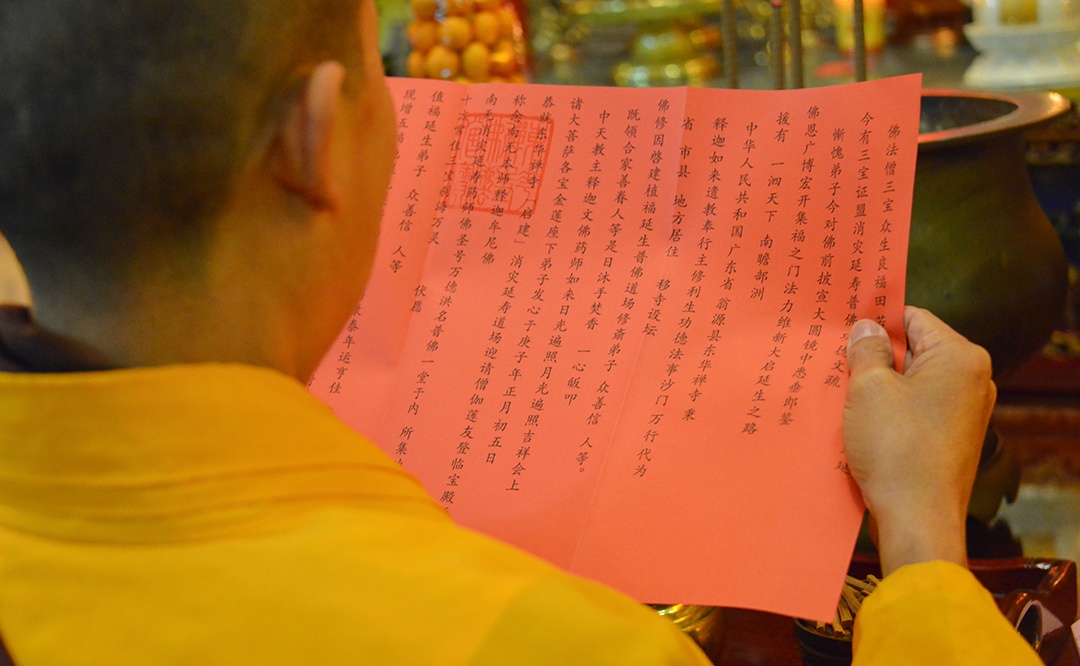 佛法僧三宝众生良福田
今有三宝证盟消灾延寿普佛 文疏 延
惭愧弟子今对佛前披宣大圆镜中悉垂郎鉴
佛恩广博宏开集福之门法力维新大启延生之路
拔有 一泗天下 南瞻部洲
中华人民共和国广东省 翁源县东华禅寺 秉
释迦如来遗教奉行主修利生功德法事沙门 万行代为
省 市县 地方居住 移寺设坛
佛修因啓建植福延生普佛道场修斋弟子 众善信 人等。
既领合家善眷人等是日沐手焚香 一心皈叩
中天教主释迦文佛药师如来日光遍照月光遍照吉祥会上
诸大菩萨各宝金莲座下弟子发心于庚子年正月初五日
恭就东华禅寺 启建」消灾延寿道场迎请僧伽莲友登临宝殿
称念南无本师释迦牟尼佛
南无消灾延寿药师佛圣号万德洪名普佛一堂于内 所集
十 常住三宝 海万灵 伏愿
值福延生弟子 众善信 人等
现增五福 泰年运亨佳